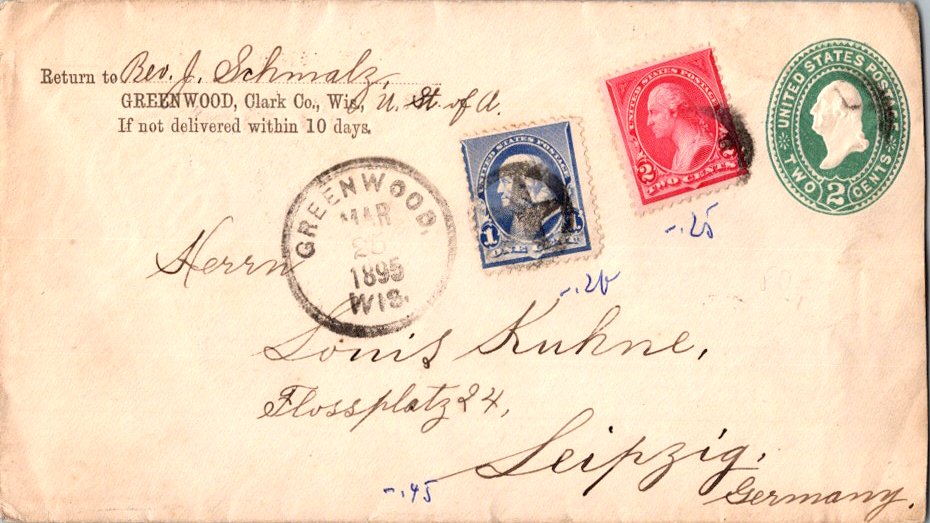 Return to Rev. J. Schmalz,
GREENWOOD, Clark Co., Wis., U. St. of A.
If not delivered within 10 days.
UNITED STATES POSTAGE
1 1
ONE CENT
UNITED STATES POSTAGE
2 2
TWO CENTS
UNITED STATES POSTAGE
TWO 2 CENTS
-.25
-.20
GREENWOOD,
MAR
1895
WIS.
Herrn
Louis Kuhne,
Flossplatz 24,
Leipzig,
Germany.
-.45